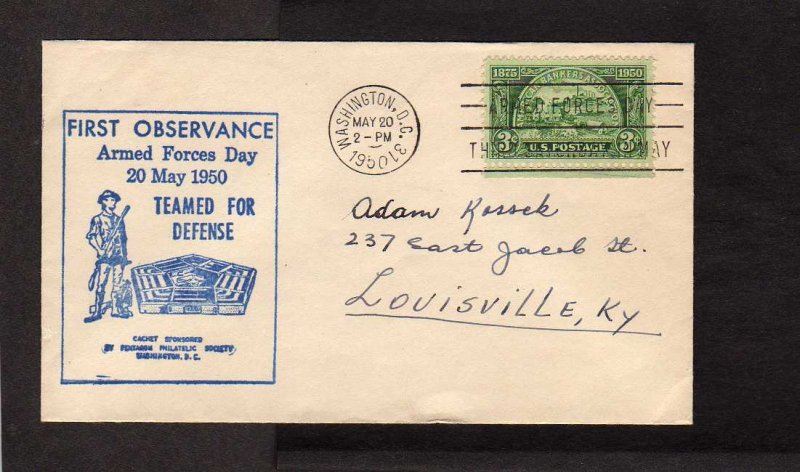 FIRST OBSERVANCE
Armed Forces Day
20 May 1950
TEAMED FOR
DEFENSE
CACHET SPONSORED
BY PENTAGON PHILATELIC SOCIETY
WASHINGTON, D. C.
WASHINGTON, D.C. 310
MAY 20
2-PM
1950
1875 1950
BANKERS ASSO
3¢ U.S. POSTAGE 3¢
ARMED FORCES DAY
MAY
Adam Kossek
237 East Jacob St.
LOUISVILLE, KY